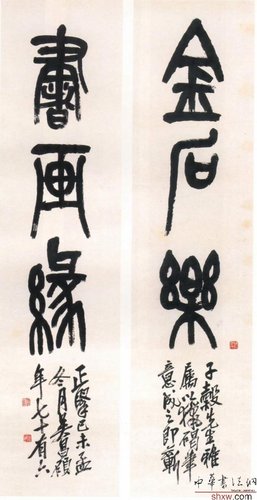 金石樂
書画緣
子穀先生雅
屬以獵碣筆
意成之即蘄
正擊己未孟
冬月吳昌碩
年七十有六
中華書法網
shxw.com